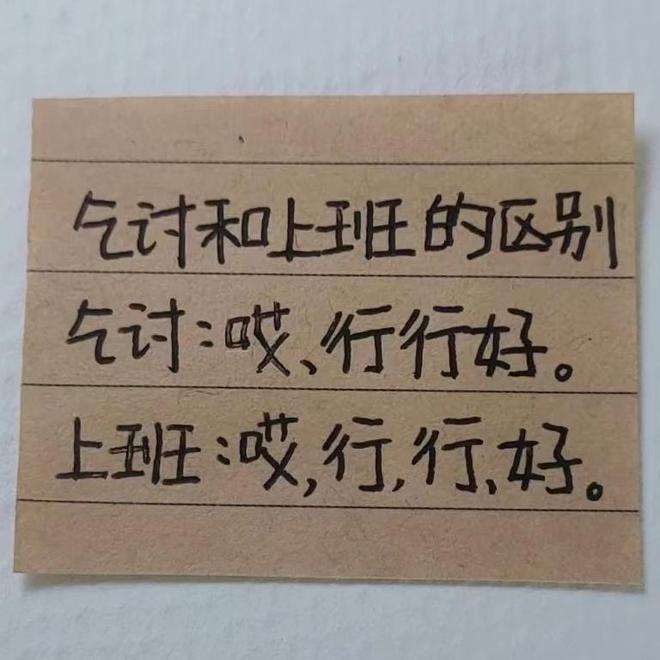 乞讨和上班的区别
乞讨:哎、行行好。
上班:哎,行,行、好。